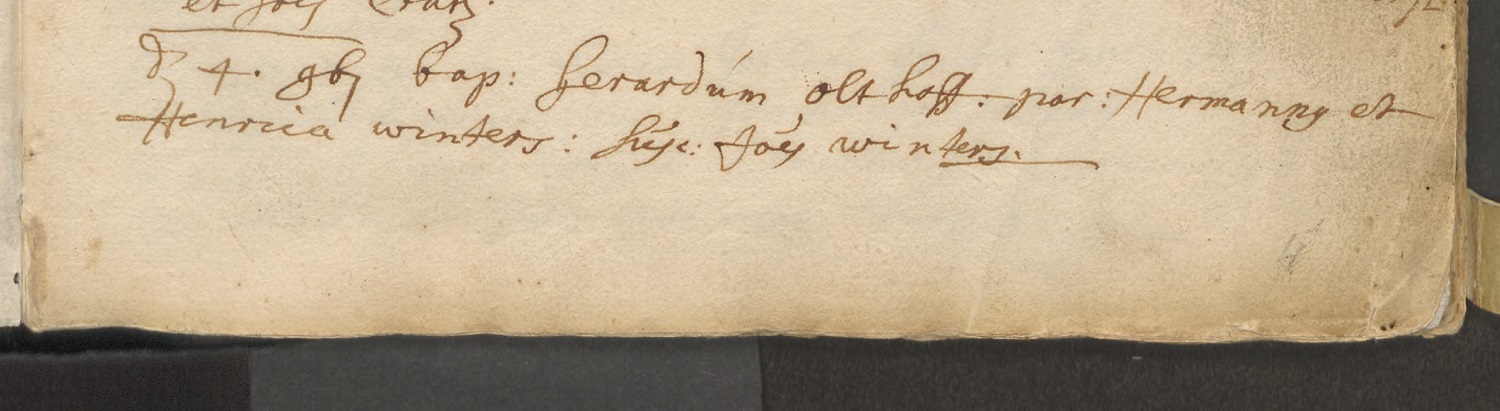 et Joës
4. 9bris bap: Gerardúm olthoff. par: Hermannus et
Henrica winters: Sús: Joës winters.